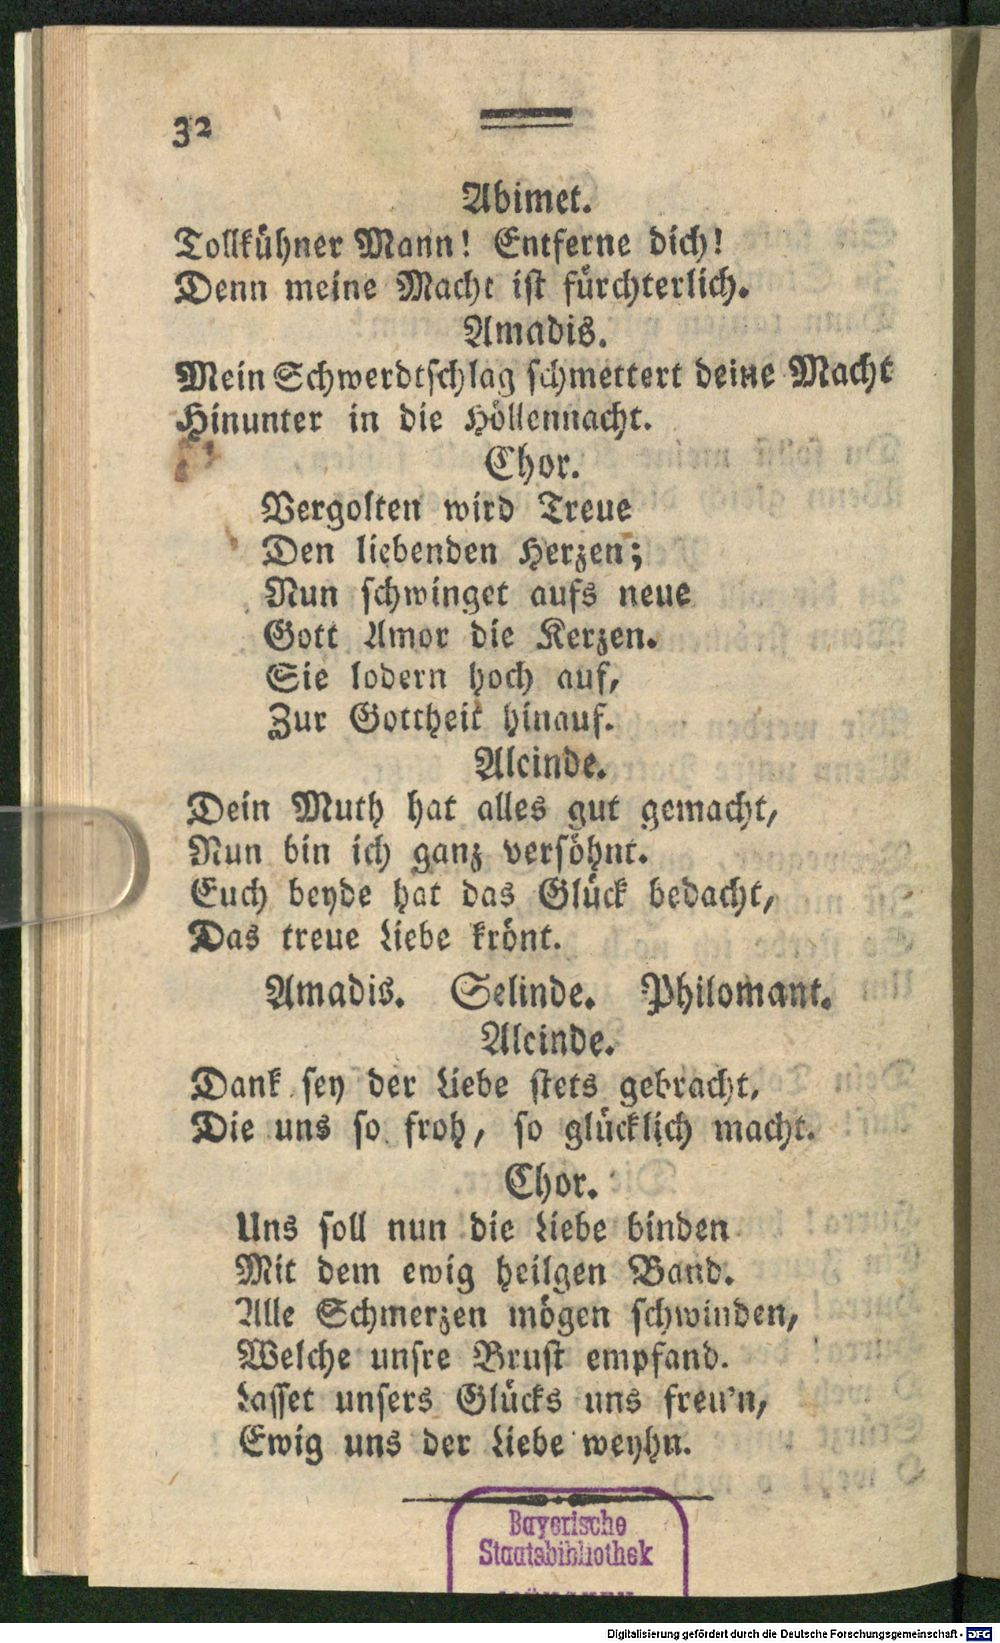 32
Abimet.
Tollkühner Mann! Entferne dich!
Denn meine Macht ist fürchterlich.
Amadis.
Mein Schwerdtschlag schmettert deine Macht
Hinunter in die Höllennacht.
Chor.
Vergolten wird Treue
Den liebenden Herzen;
Nun schwinget aufs neue
Gott Amor die Kerzen.
Sie lodern hoch auf,
Zur Gottheit hinauf.
Alcinde.
Dein Muth hat alles gut gemacht,
Nun bin ich ganz versöhnt.
Euch beyde hat das Glück bedacht,
Das treue Liebe krönt.
Amadis. Selinde. Philomant.
Alcinde.
Dank sey der Liebe stets gebracht,
Die uns so froh, so glücklich macht.
Chor.
Uns soll nun die Liebe binden
Mit dem ewig heilgen Band.
Alle Schmerzen mögen schwinden,
Welche unsre Brust empfand.
Lasset unsers Glücks uns freu'n,
Ewig uns der Liebe weyhn.
Bayerische
Staatsbibliothek
MÜNCHEN
Digitalisierung gefördert durch die Deutsche Forschungsgemeinschaft - DFG